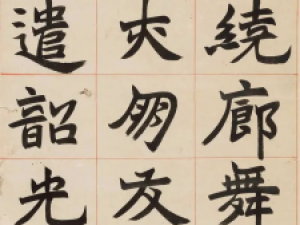 繞廊舞
朋友
遣韶光